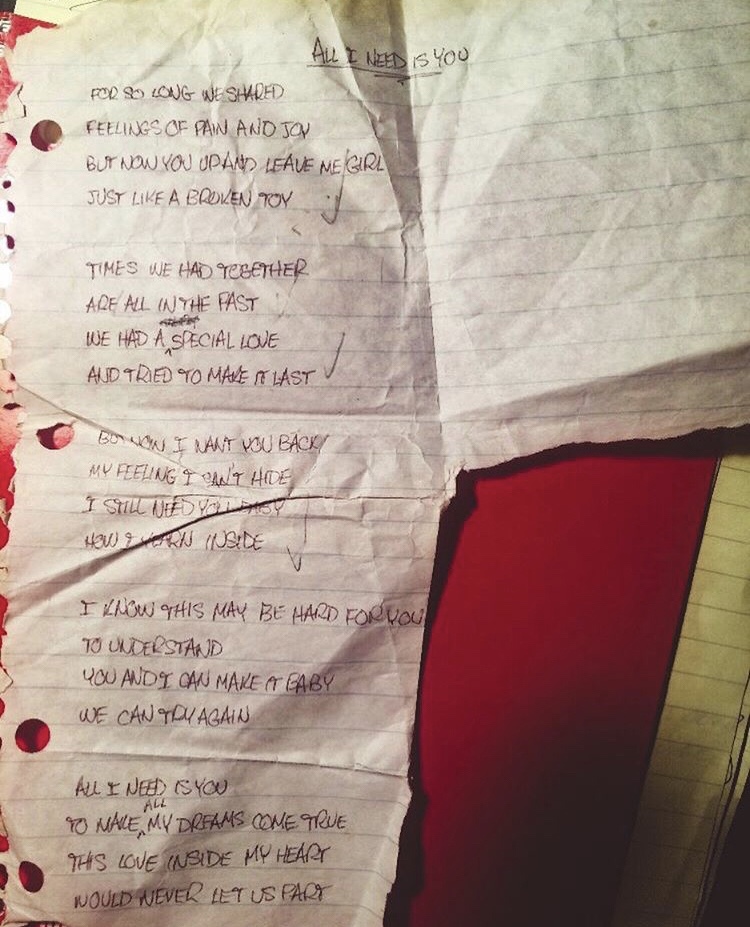 ALL I NEED IS YOU
FOR SO LONG WE SHARED
FEELINGS OF PAIN AND JOY
BUT NOW YOU UP AND LEAVE ME GIRL
JUST LIKE A BROKEN TOY
TIMES WE HAD TOGETHER
ARE ALL IN THE PAST
WE HAD A SPECIAL LOVE
AND TRIED TO MAKE IT LAST
BUT NOW I WANT YOU BACK
MY FEELING I CAN'T HIDE
I STILL NEED YOU BABY
HOW I YEARN INSIDE
I KNOW THIS MAY BE HARD FOR YOU
TO UNDERSTAND
YOU AND I CAN MAKE IT BABY
WE CAN TRY AGAIN
ALL I NEED IS YOU
TO MAKE ALL MY DREAMS COME TRUE
THIS LOVE INSIDE MY HEART
WOULD NEVER LET US PART